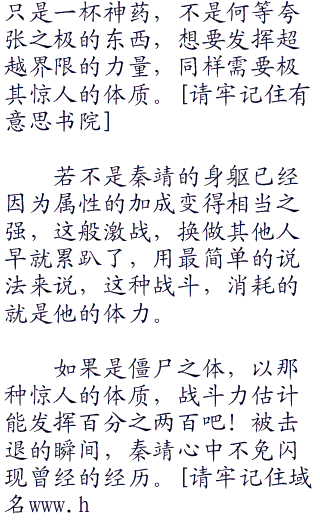 只是一杯神药，不是何等夸
张之极的东西，想要发挥超
越界限的力量，同样需要极
其惊人的体质。[请牢记住有
意思书院]
　　若不是秦靖的身躯已经
因为属性的加成变得相当之
强，这般激战，换做其他人
早就累趴了，用最简单的说
法来说，这种战斗，消耗的
就是他的体力。
　　如果是僵尸之体，以那
种惊人的体质，战斗力估计
能发挥百分之两百吧！被击
退的瞬间，秦靖心中不免闪
现曾经的经历。[请牢记住域
名www.h